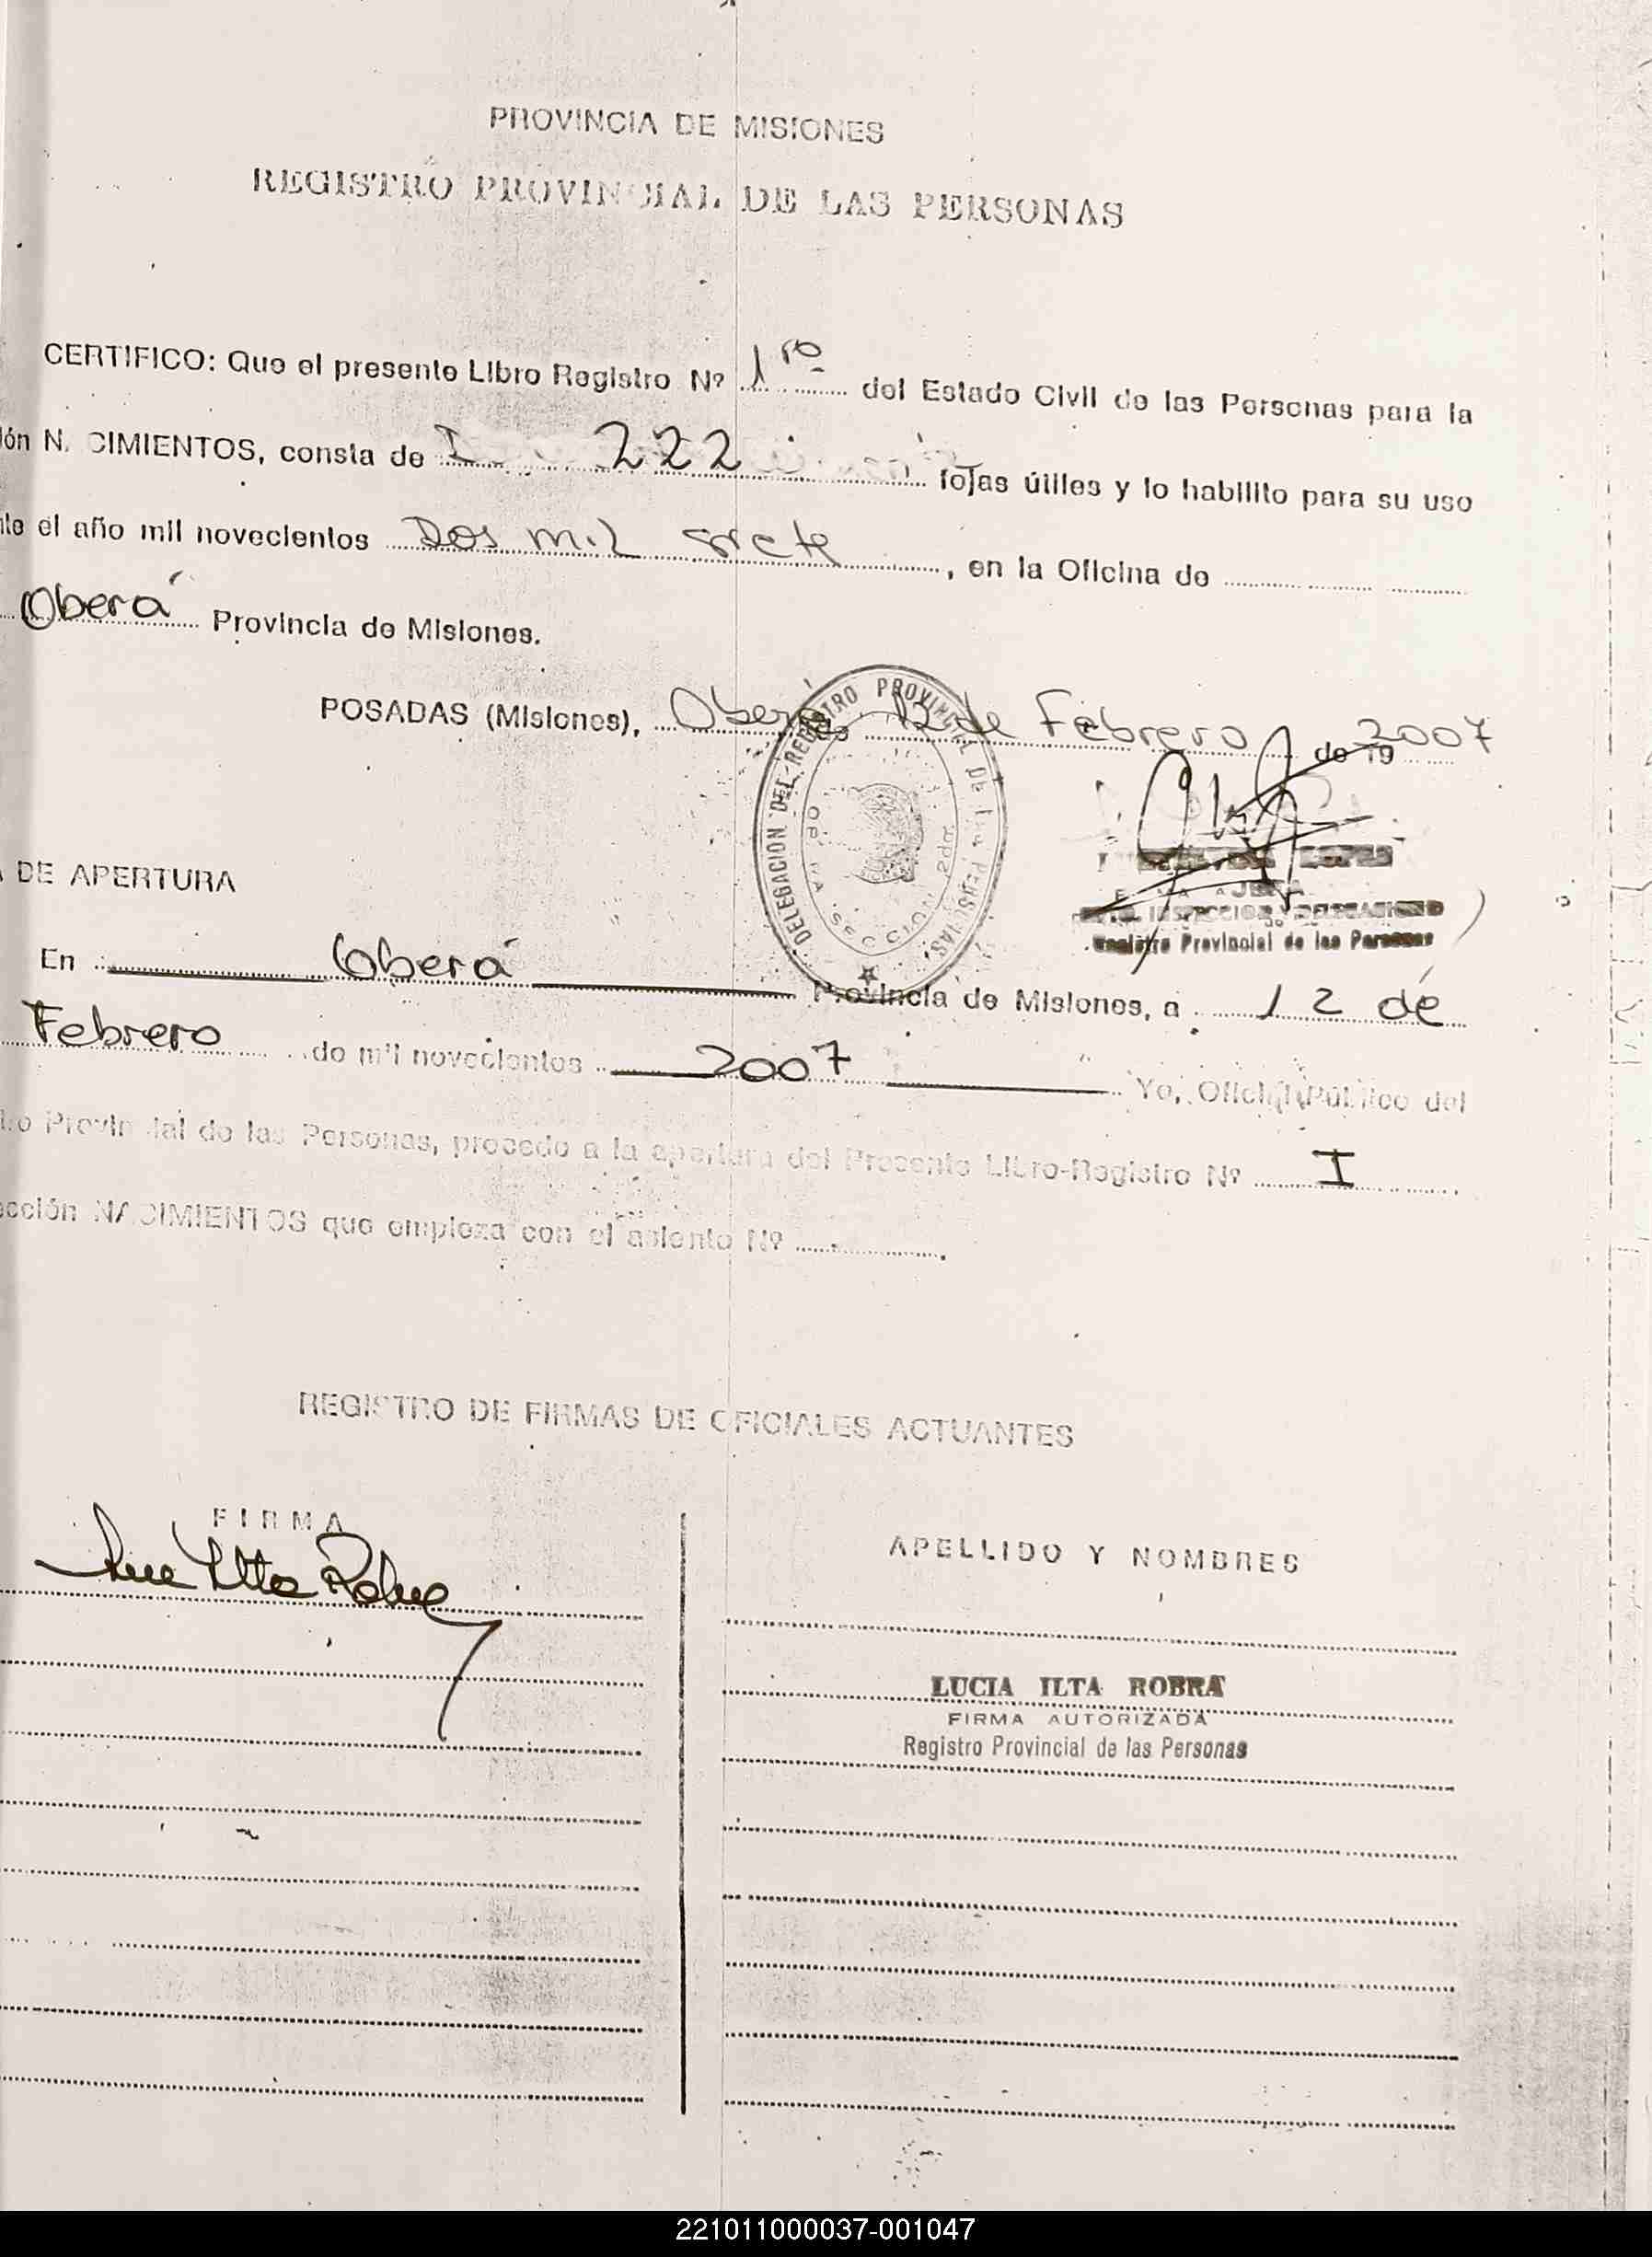 PROVINCIA DE MISIONES
REGISTRO PROVINCIAL DE LAS PERSONAS
CERTIFICO: Que el presente Libro Registro Nº 1ro del Estado Civil de las Personas para la
ión N. CIMIENTOS, consta de 222 fojas útiles y lo habilito para su uso
nte el año mil novecientos Dos mil siete, en la Oficina de
Oberá Provincia de Misiones.
POSADAS (Misiones), Oberá, 12 de Febrero de 19 2007
DELEGACION DEL REGISTRO PROVINCIAL DE LAS PERSONAS
SECCION 2da
Registro Provincial de las Personas
DE APERTURA
En Oberá Provincia de Misiones, a 12 de
Febrero de mil novecientos 2007 Yo, Oficial Público del
Provincial de las Personas, procedo a la apertura del Presente Libro-Registro Nº I
cción NACIMIENTOS que empieza con el asiento Nº
REGISTRO DE FIRMAS DE OFICIALES ACTUANTES
FIRMA
APELLIDO Y NOMBRES
LUCIA ILTA ROBRA
FIRMA AUTORIZADA
Registro Provincial de las Personas
221011000037-001047